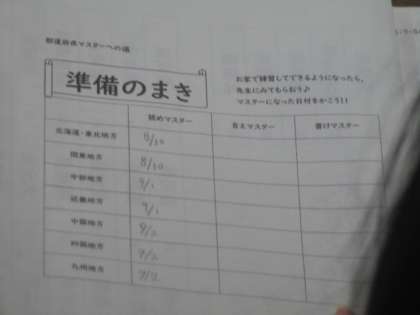 都道府県マスターへの道
準備のまき
お家で練習してできるようになったら、
先生にみてもらおう♪
マスターになった日付をかこう!!
読めマスター 言えマスター 書けマスター
北海道・東北地方 8/30
関東地方 8/30
中部地方 9/1
近畿地方 9/1
中国地方 9/2
四国地方 9/2
九州地方 9/2